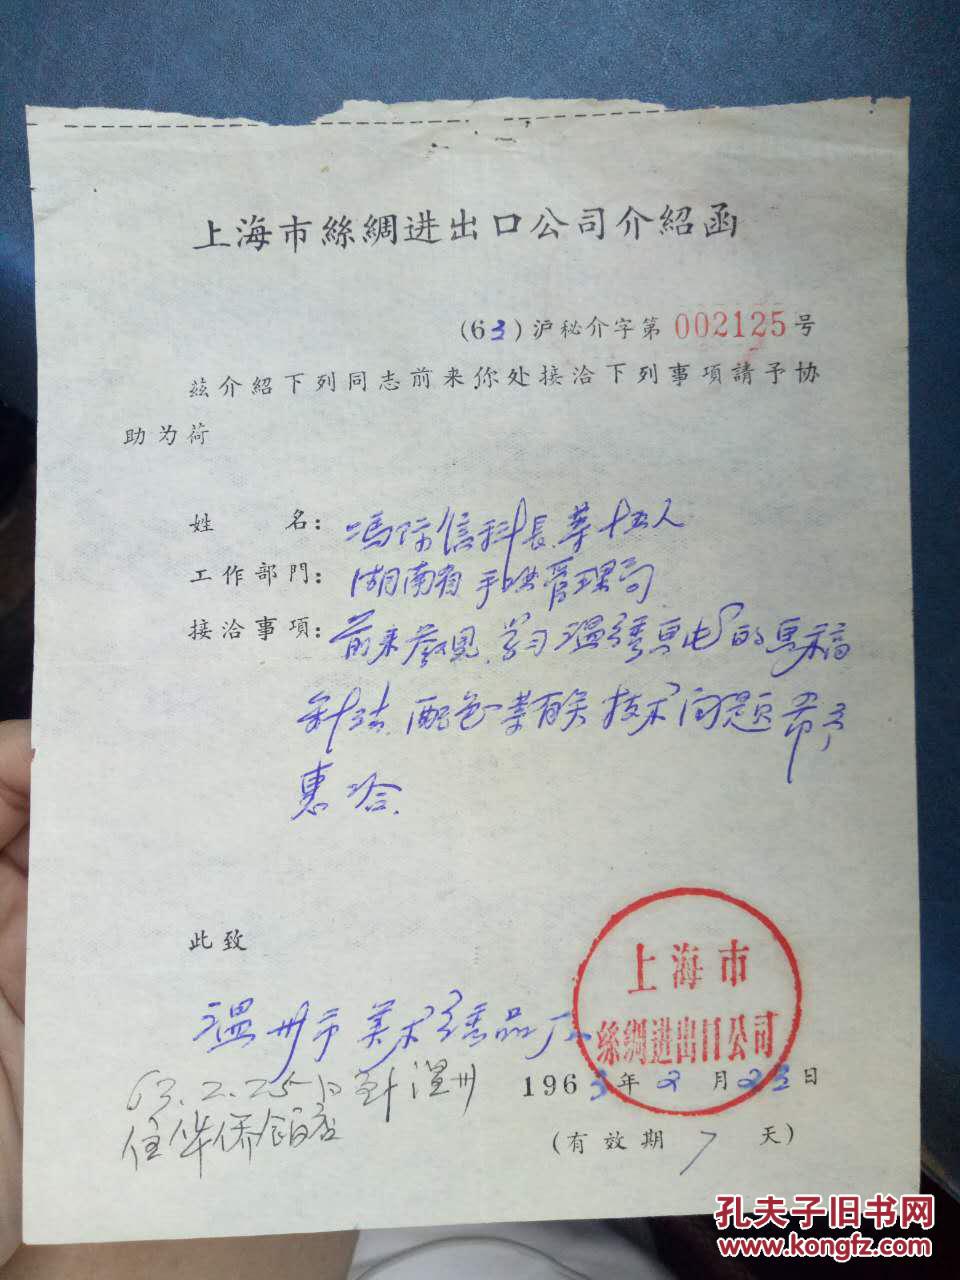 上海市絲綢进出口公司介紹函
(63)沪秘介字第 002125 号
茲介紹下列同志前来你处接洽下列事項請予协
助为荷
姓 名: 馮际信科長等十五人
工作部門: 湖南省手工业管理局
接洽事項: 前来参观、学习温绣 的 稿
针法、配色等有关技术问题希予
惠洽.
此致
温州市美术绣品厂
上海市
絲綢进出口公司
63.2.25日到温州
1963年2月23日
住华侨饭店
(有效期7天)
孔夫子旧书网
www.kongfz.com